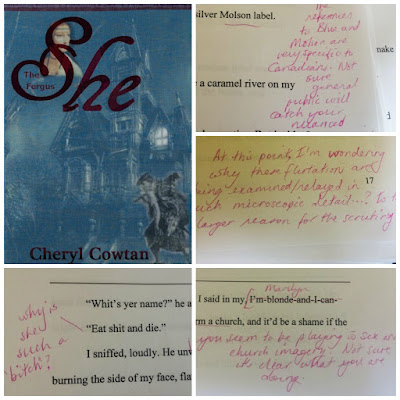 The Fergus
She
Cheryl Cowtan
silver Molson label.
e a caramel river on my
make
references
to Blue and
Molson are
very specific to
Canadians. Not
sure
general
public will
catch your
nuanced
At this point, I'm wondering
why these flirtations are
being examined/relayed in
such microscopic detail...? Is t
larger reason for the scrutiny
17
why is
she
such a
bitch?
"Whit's yer name?" he a
"Eat shit and die."
I sniffed, loudly. He unw
burning the side of my face, fla
Marilyn
I said in my I'm-blonde-and-I-can-
rm a church, and it'd be a shame if the
you seem to be playing to sex and
church imagery. Not sure
it's clear what you are
doing.